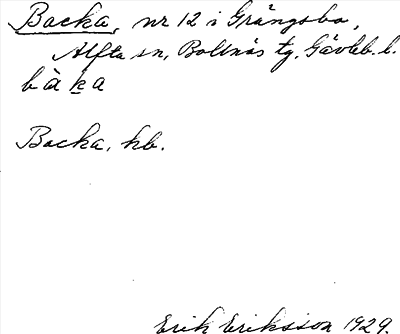 Backa, nr 12 i Grängsbo,
Alfta sn, Bollnäs tg, Gävleb. l.
bàka
Backa, hb.
Erik Eriksson 1929.